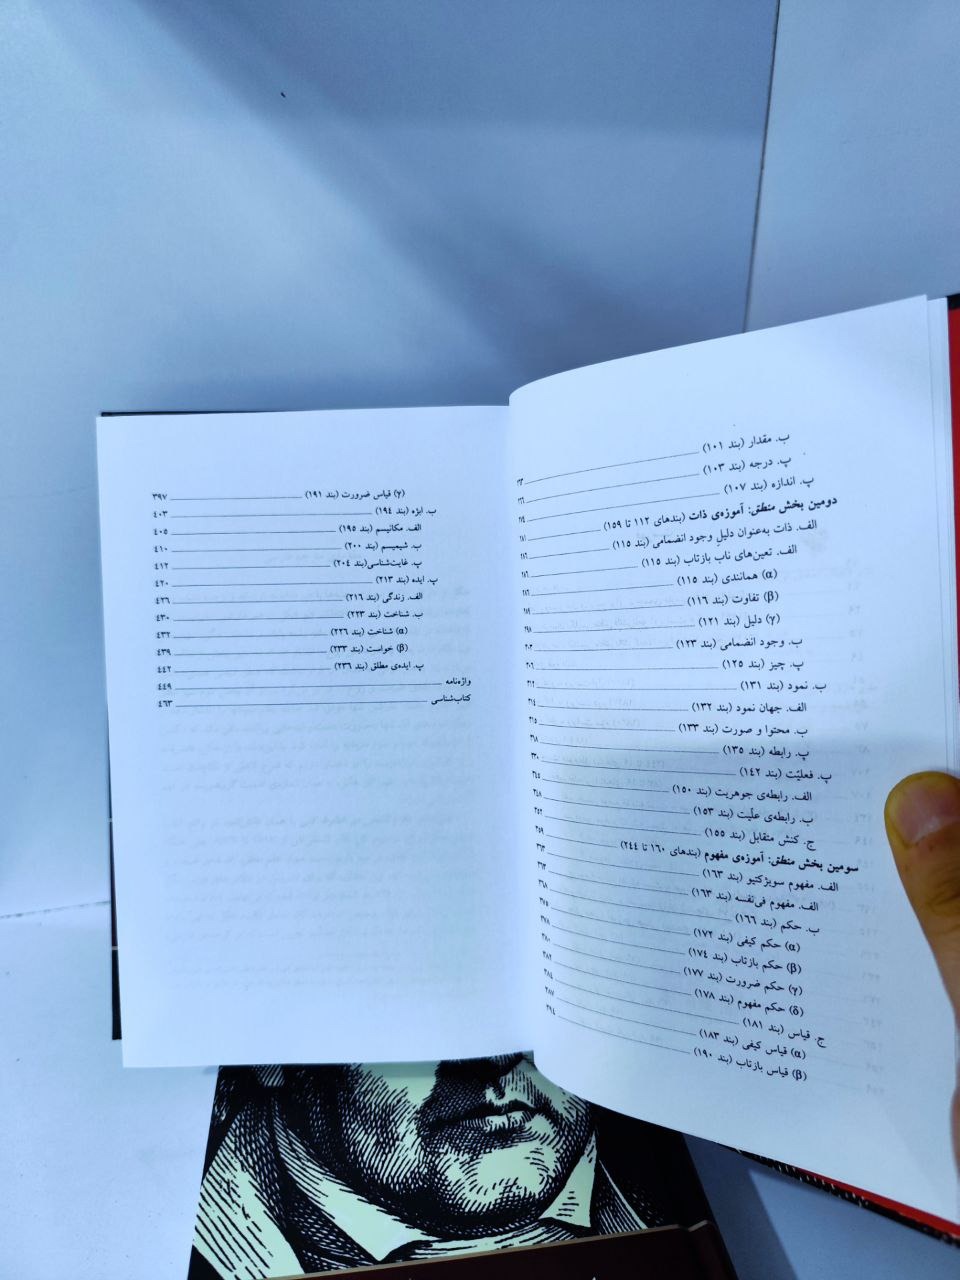 ب. مقدار (بند ۱۰۱)
پ. درجه (بند ۱۰۳)
پ. اندازه (بند ۱۰۷)
دومین بخش منطق: آموزه‌ی ذات (بندهای ۱۱۲ تا ۱۵۹)
الف. ذات به‌عنوان دلیلِ وجود انضمامی (بند ۱۱۵)
الف. تعین‌های ناب بازتاب (بند ۱۱۵)
(α) همانندی (بند ۱۱۵)
(β) تفاوت (بند ۱۱۶)
(γ) دلیل (بند ۱۲۱)
ب. وجود انضمامی (بند ۱۲۳)
پ. چیز (بند ۱۲۵)
ب. نمود (بند ۱۳۱)
الف. جهان نمود (بند ۱۳۲)
ب. محتوا و صورت (بند ۱۳۳)
پ. رابطه (بند ۱۳۵)
پ. فعلیّت (بند ۱۴۲)
الف. رابطه‌ی جوهریت (بند ۱۵۰)
ب. رابطه‌ی علّیت (بند ۱۵۳)
ج. کنش متقابل (بند ۱۵۵)
سومین بخش منطق: آموزه‌ی مفهوم (بندهای ۱۶۰ تا ۲۴۴)
الف. مفهوم سوبژکتیو (بند ۱۶۳)
الف. مفهوم فی‌نفسه (بند ۱۶۳)
ب. حکم (بند ۱۶۶)
(α) حکم کیفی (بند ۱۷۲)
(β) حکم بازتاب (بند ۱۷۴)
(γ) حکم ضرورت (بند ۱۷۷)
(δ) حکم مفهوم (بند ۱۷۸)
ج. قیاس (بند ۱۸۱)
(α) قیاس کیفی (بند ۱۸۳)
(β) قیاس بازتاب (بند ۱۹۰) ۳۹۴
(γ) قیاس ضرورت (بند ۱۹۱) ۳۹۷
ب. ابژه (بند ۱۹۴) ۴۰۳
الف. مکانیسم (بند ۱۹۵) ۴۰۵
ب. شیمیسم (بند ۲۰۰) ۴۱۰
پ. غایت‌شناسی(بند ۲۰۴) ۴۱۲
پ. ایده (بند ۲۱۳) ۴۲۰
الف. زندگی (بند ۲۱۶) ۴۲۶
ب. شناخت (بند ۲۲۳) ۴۳۰
(α) شناخت (بند ۲۲۶) ۴۳۲
(β) خواست (بند ۲۳۳) ۴۳۹
پ. ایده‌ی مطلق (بند ۲۳۶) ۴۴۲
واژه‌نامه ۴۴۹
کتاب‌شناسی ۴۶۳